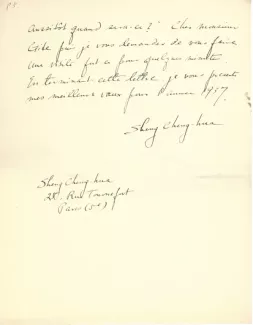 Aussitôt quand sera-ce? Cher monsieur
puis je vous demander de vous faire
une visite pour quelques minutes.
En terminant cette lettre je vous présente
mes meilleurs vœux pour l'année 1957.
Sheng Cheng-hua
Sheng Cheng-hua
28, Rue Tournefort
Paris (5e)